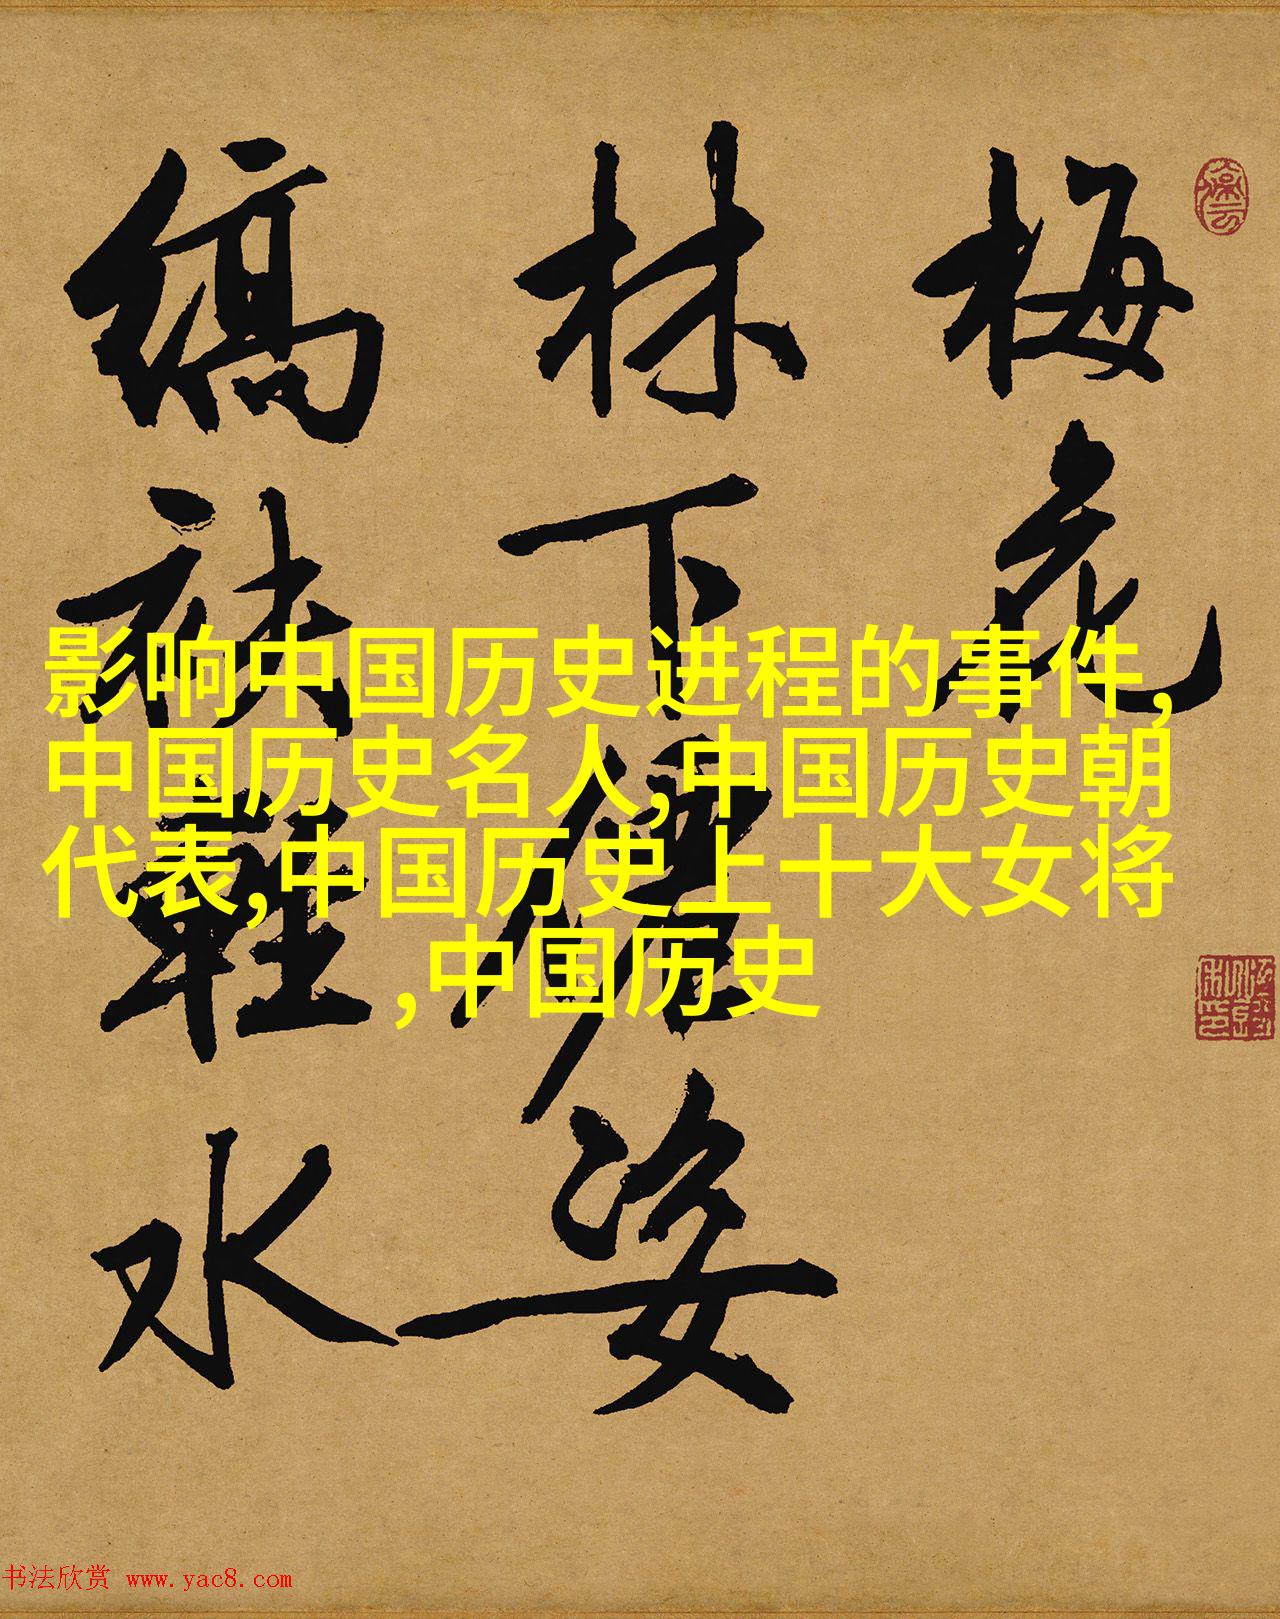 梅花
林下僊姿
縞袂輕水
影响中国历史进程的事件,
中国历史名人,中国历史朝
代表,中国历史上十大女将
,中国历史
书法欣赏 www.yac8.com